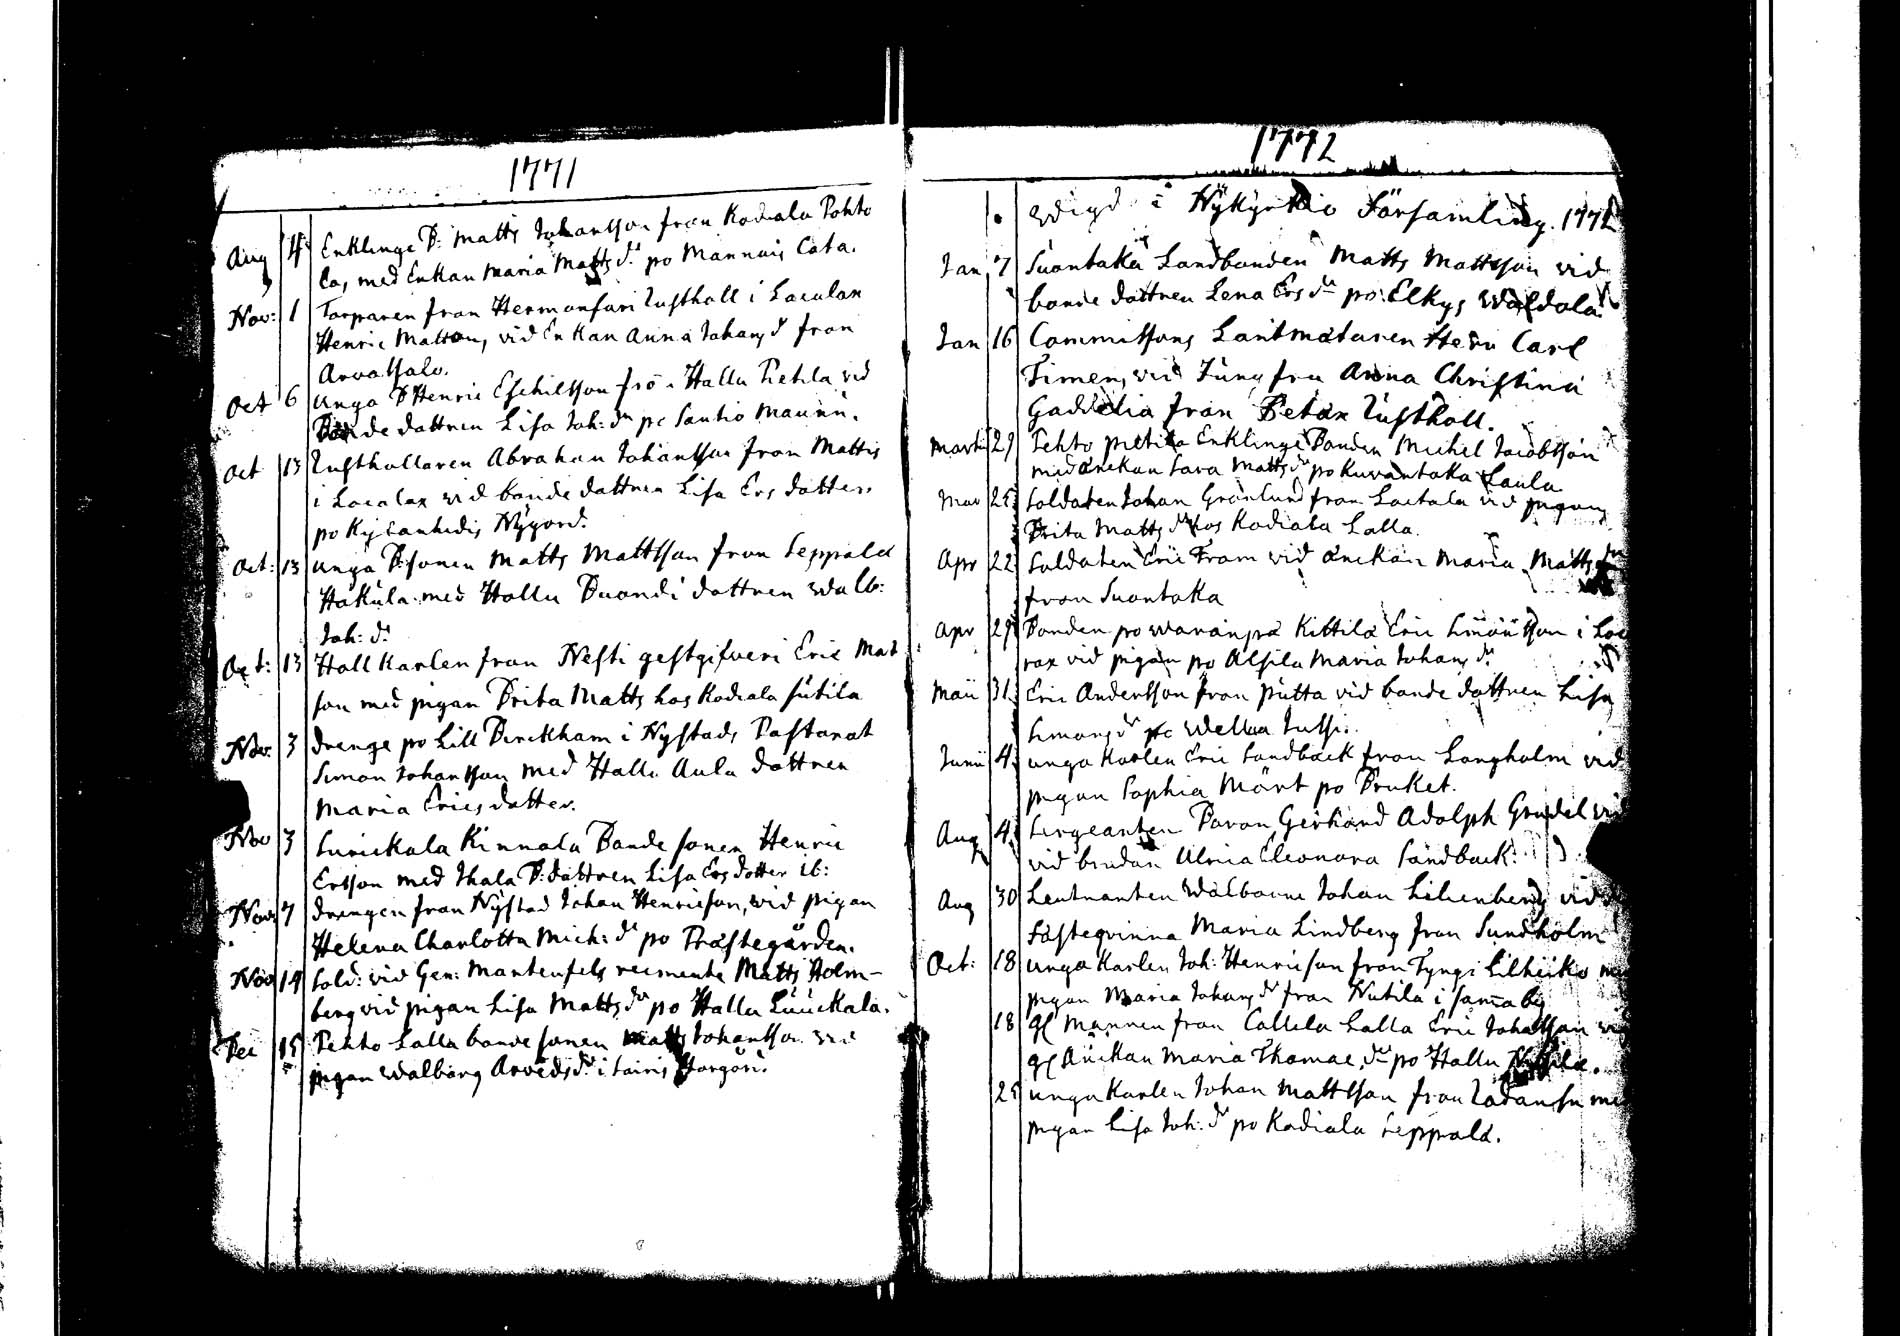 1771
Aug 4 Enklinge B: Matts Johansson fran Kodiala Pohto
la, med Enkan Maria Matts dr po Mannais Cata.
Nov: 1 Torparen fran Hermansari Rusthall i Localax
Henric Matson, vid Enkan Anna Johans d fran
Arvassalo.
Oct 6 unga B Henric Eschilsson frå Hallu Pietila vid
Bonde dattren Lisa Joh: dr po Santio Maunu.
Oct 13 Rusthallaren Abraham Johansson fran Mattis
i Localax vid bonde dattren Lisa Ers dotter
po Kylanhedis Nygord.
Oct: 13 unga B:sonen Matts Mattsson fran Seppala
Hakula med Hallu Buandi dattren Walb:
Joh: dr
Oct: 13 Hall Karlen fran Nesti gestgifveri Eric Mat
son med pigan Brita Matts hos Kodiala Sutila
Nov. 3 drenge po Lill Birckham i Nystads Pastorat
Simon Johansson med Hallu Aula dattren
Maria Erics datter.
Nov 3 Surickala Kinnala Bonde sonen Henric
Ersson med Ihala B:dattren Lisa Ers dotter ib:
Nov 7 drengen fran Nystad Johan Henricson, vid pigan
Helena Charlotta Mich: dr po Prästegården.
Nov 14 Sold: vid Gen: Manteufels reemente Matts Holm-
berg vid pigan Lisa Matts dr po Hallu Luuckala.
Dec 15 Pehto Lalla bonde sonen Matts Johansson vid
pigan Walborg Arveds dr i Sairis Storgård.
1772
Wigd i Nykyrkio Församling. 1772
Jan 7 Suontaka Landbonden Matts Mattsson vid
bonde dattren Lena Ers dr po Elkys Waldola
Jan 16 Commissions Lantmätaren Herr Carl
Timen, vid Jungfru Anna Christina
Gaddelia fran Betax Rusthall.
Martii 29 Pehto pietila Enklinge Bonden Michel Jacobsson
med änckan Sara Matts dr po Kuvantaka Laula
Mar 25 Soldaten Johan Grönlund fran Laitala vid pigan
Brita Matts dr hos Kodiala Lalla.
Apr 22 Soldaten Eric Fram vid änckan Maria Matts dr
fran Suontaka
Apr 29 Bonden po Waranpä Kittila Eric Simonsson i Loc
rax vid pigan po Alsila Maria Johans dr
Maii 31. Eric Andersson fran putta vid bonde dattren Lisa
Simons dr po Wellua Jussi.
Junii 4. unga Karlen Eric Sandback fran Langholm vid
pigan Sophia Mört po Bruket.
Aug 4. Sergeanten Baron Gerhard Adolph Grudel vid
vid brudan Ulrica Eleonora Sandback.
Aug 30 Leutnanten Walborne Johan Lilienberg vid
Fästeqvinna Maria Lindberg fran Sundholm
Oct: 18 unga Karlen Joh: Henricson fran Tyngi Lilheiko
pigan Maria Johans dr fran Nutila i sama by
18 gl Mannen fran Callela Lalla Eric Johansson vid
gl Änckan Maria Thomae dr po Hallu
25 unga Karlen Johan Mattsson fran med
pigan Lisa Joh: dr po Kodiala Seppala.